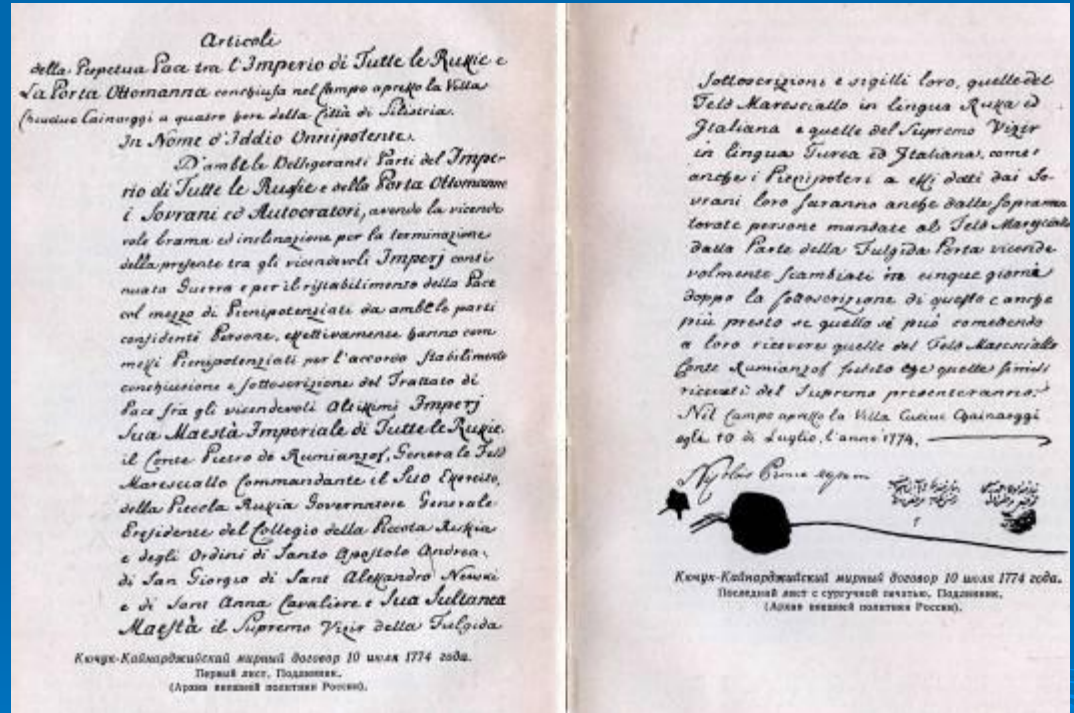 Articoli
della Perpetua Pace tra l'Imperio di Tutte le Russie e
La Porta Ottomanna conchiusa nel Campo apresso la Villa
Cainarggi a quatro hore della Città di Silistria.
In Nome d'Iddio Onnipotente.
D'ambe le Belligeranti Parti del Impe-
rio di Tutte le Russie e della Porta Ottomanna
i Sovrani ed Autocratori, avendo la vicende
vole brama ed inclinazione per la terminazione
della presente tra gli vicendevoli Imperj conti
nuata Guerra e per il ristabilimento della Pace
col mezzo di Plenipotenziati da ambe le parti
confidenti Persone, effettivamente hanno com
messi Plenipotenziati per l'accordo stabilimento
conchiusione e sottoscrizione del Trattato di
Pace fra gli vicendevoli Altissimi Imperj
Sua Maestà Imperiale di Tutte le Russie.
il Conte Pietro de Rumianzof, Generale Feld
Maresciallo Commandante il Suo Esercito,
della Piccola Russia Governatore Generale
Presidente del Collegio della Piccola Russia
e degli Ordini di Santo Apostolo Andrea,
di San Giorgio di Sant Alessandro Newski
e di Sant Anna Cavaliere e Sua Sultanea
Maestà il Supremo Vizir della Fulgida
Кючук-Кайнарджийский мирный договор 10 июля 1774 года.
Первый лист. Подлинник.
(Архив внешней политики России).
sottoscrizioni e sigilli loro, quelle del
Feld Maresciallo in lingua Russa ed
Italiana e quelle del Supremo Vizir
in lingua Turca ed Italiana, come
anche i Plenipoteri a essi dati dai So-
vrani loro saranno anche dalle sopranno
tovate persone mandate al Feld Maresciallo
dalla Parte della Fulgida Porta vicende
volmente scambiati in cinque giorni
doppo la sottoscrizione di questo e anche
più presto se quello si può
a loro ricevere quelle del Feld Maresciallo
Conte Rumianzof che quelle simili
ricevuti del Supremo presenteranno.
Nel Campo apresso la Villa Cainarggi
agli 10 di Luglio, l'anno 1774.
Prince
Кючук-Кайнарджийский мирный договор 10 июля 1774 года.
Последний лист с сургучной печатью. Подлинник.
(Архив внешней политики России).